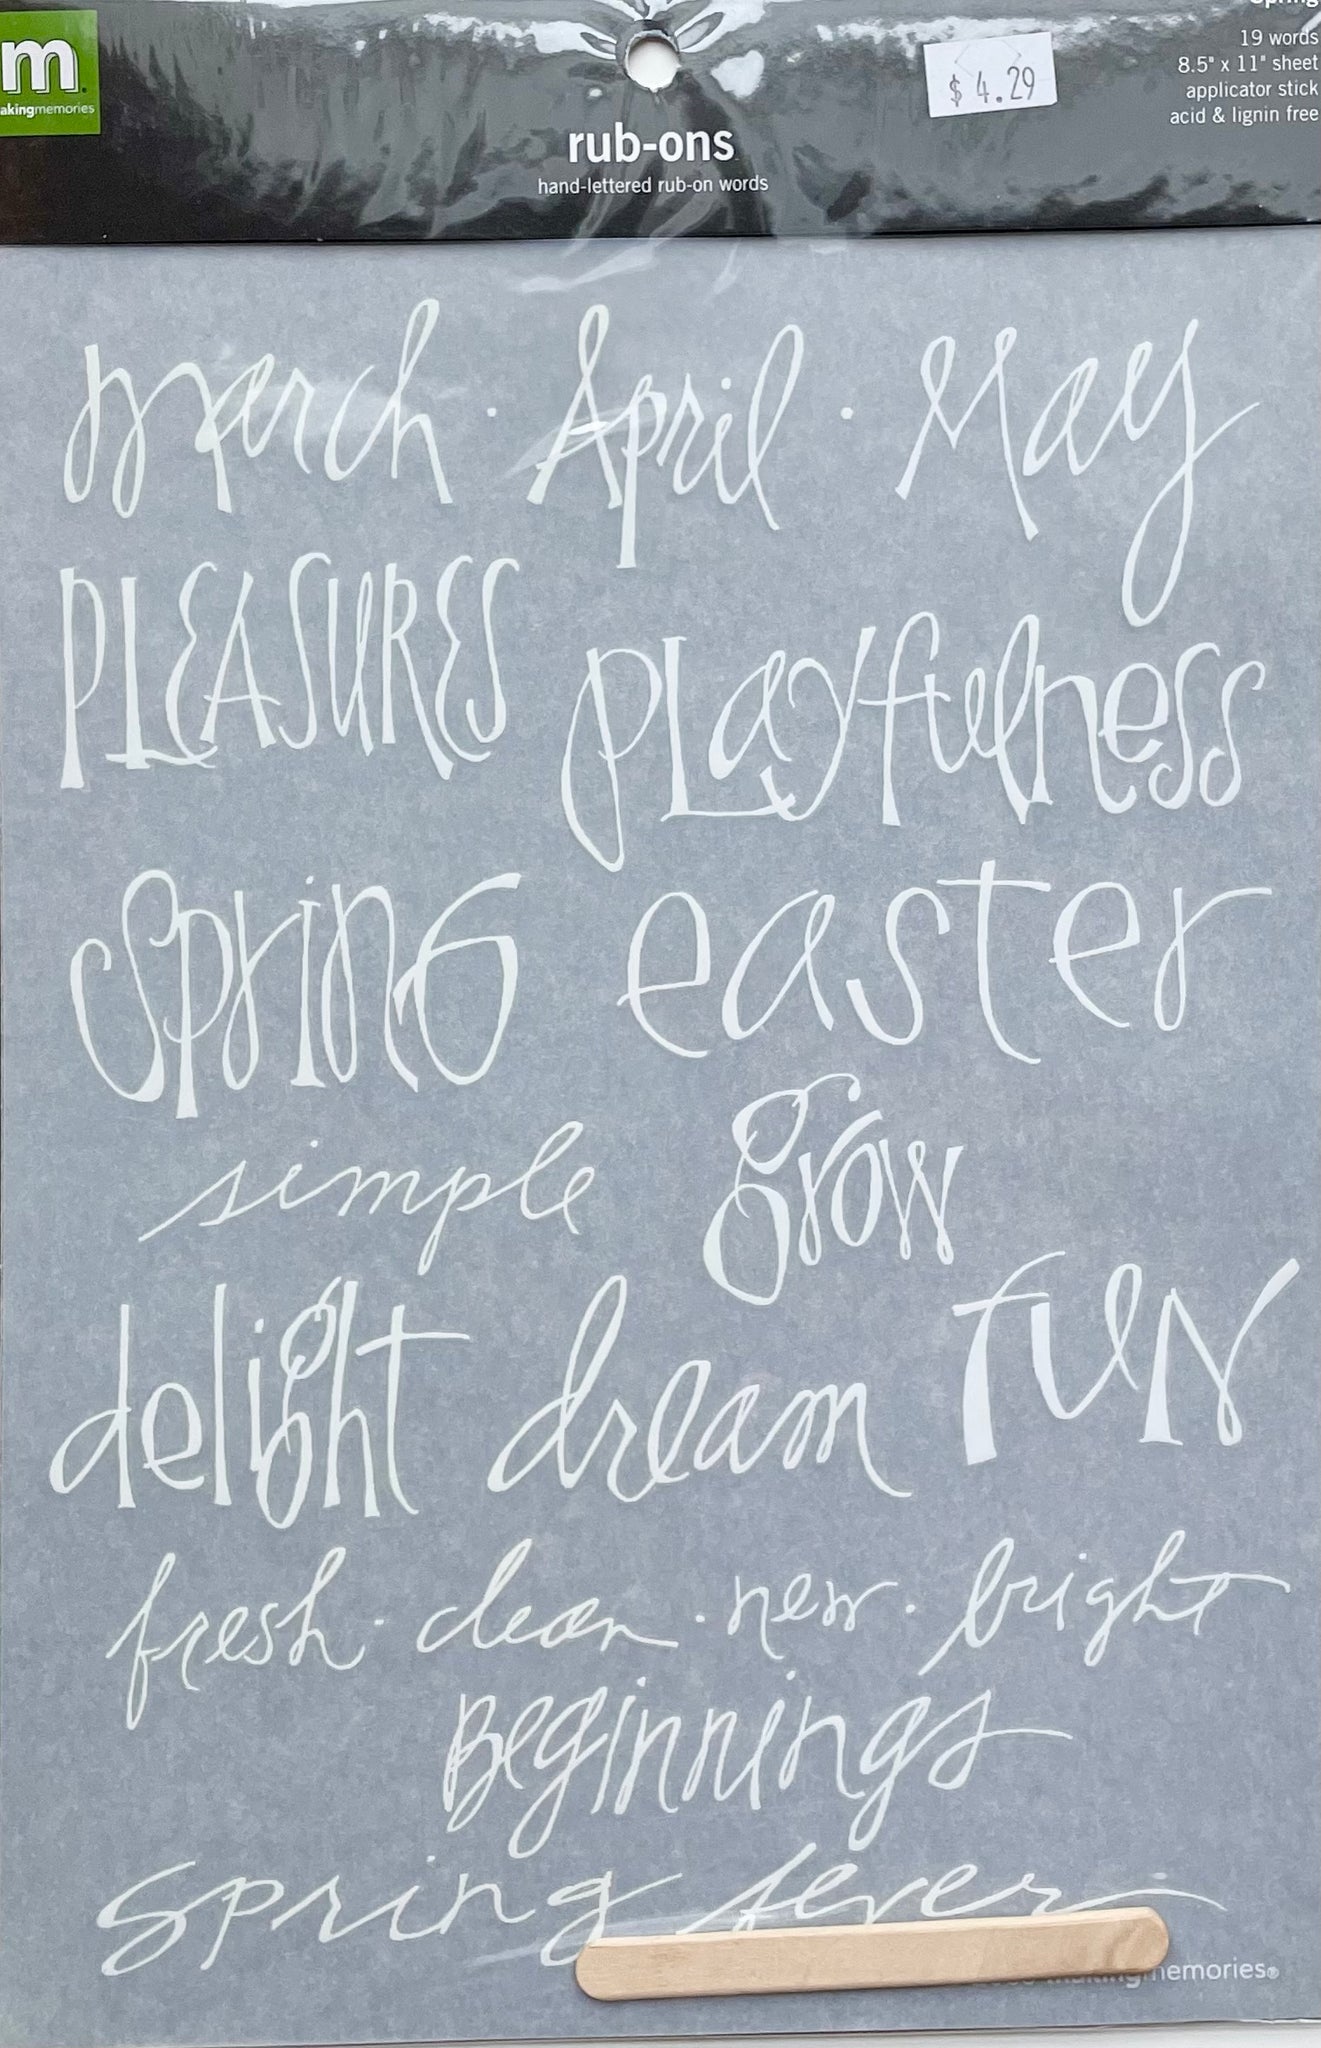 m.
akingmemories
rub-ons
hand-lettered rub-on words
$ 4.29
Spring
19 words
8.5" x 11" sheet
applicator stick
acid & lignin free
march · April · May
PLEASURES
PLayfulness
SprinG easter
simple grow
delight dream FUN
fresh · clean · new · bright
Beginnings
spring fever
makingmemories®